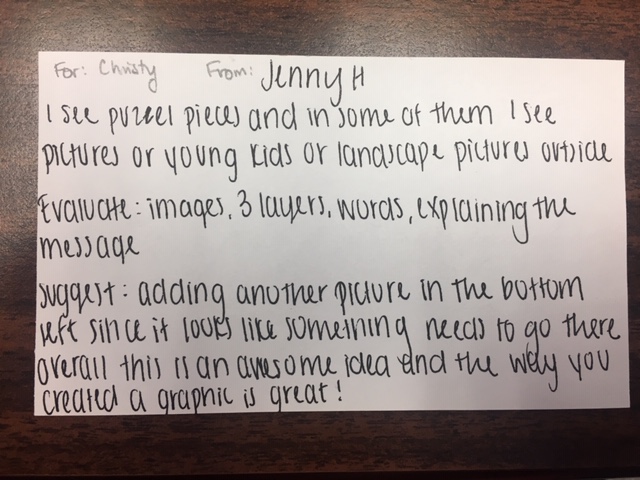 For: Christy From: Jenny H
I see puzzel pieces and in some of them I see
pictures or young kids or landscape pictures outside
Evaluate: images, 3 layers, words, explaining the
message
suggest: adding another picture in the bottom
left since it looks like something needs to go there
overall this is an awesome idea and the way you
created a graphic is great!